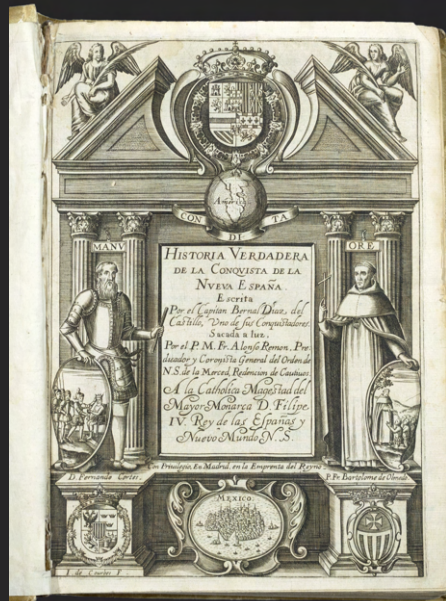 America
CON DI TA
MANV
ORE
HISTORIA VERDADERA
DE LA CONQVISTA DE LA
NVEVA ESPAÑA.
Escrita
Por el Capitan Bernal Diaz, del
Castillo, Vno de sus Conquistadores.
Sacada a luz,
Por el P. M. Fr. Alonso Remon, Pre
dicador y Coronista General del Orden de
N. S. de la Merced, Redencion de Cautiuos.
A la Catholica Magestad del
Mayor Monarca D. Filipe
IV. Rey de las Españas y
Nuevo Mundo N. S.
Con Privilegio, En Madrid, en la Emprenta del Reyno
D. Fernando Cortes.
P. Fr. Bartolome de Olmedo
MEXICO.
I. de Courbes F.